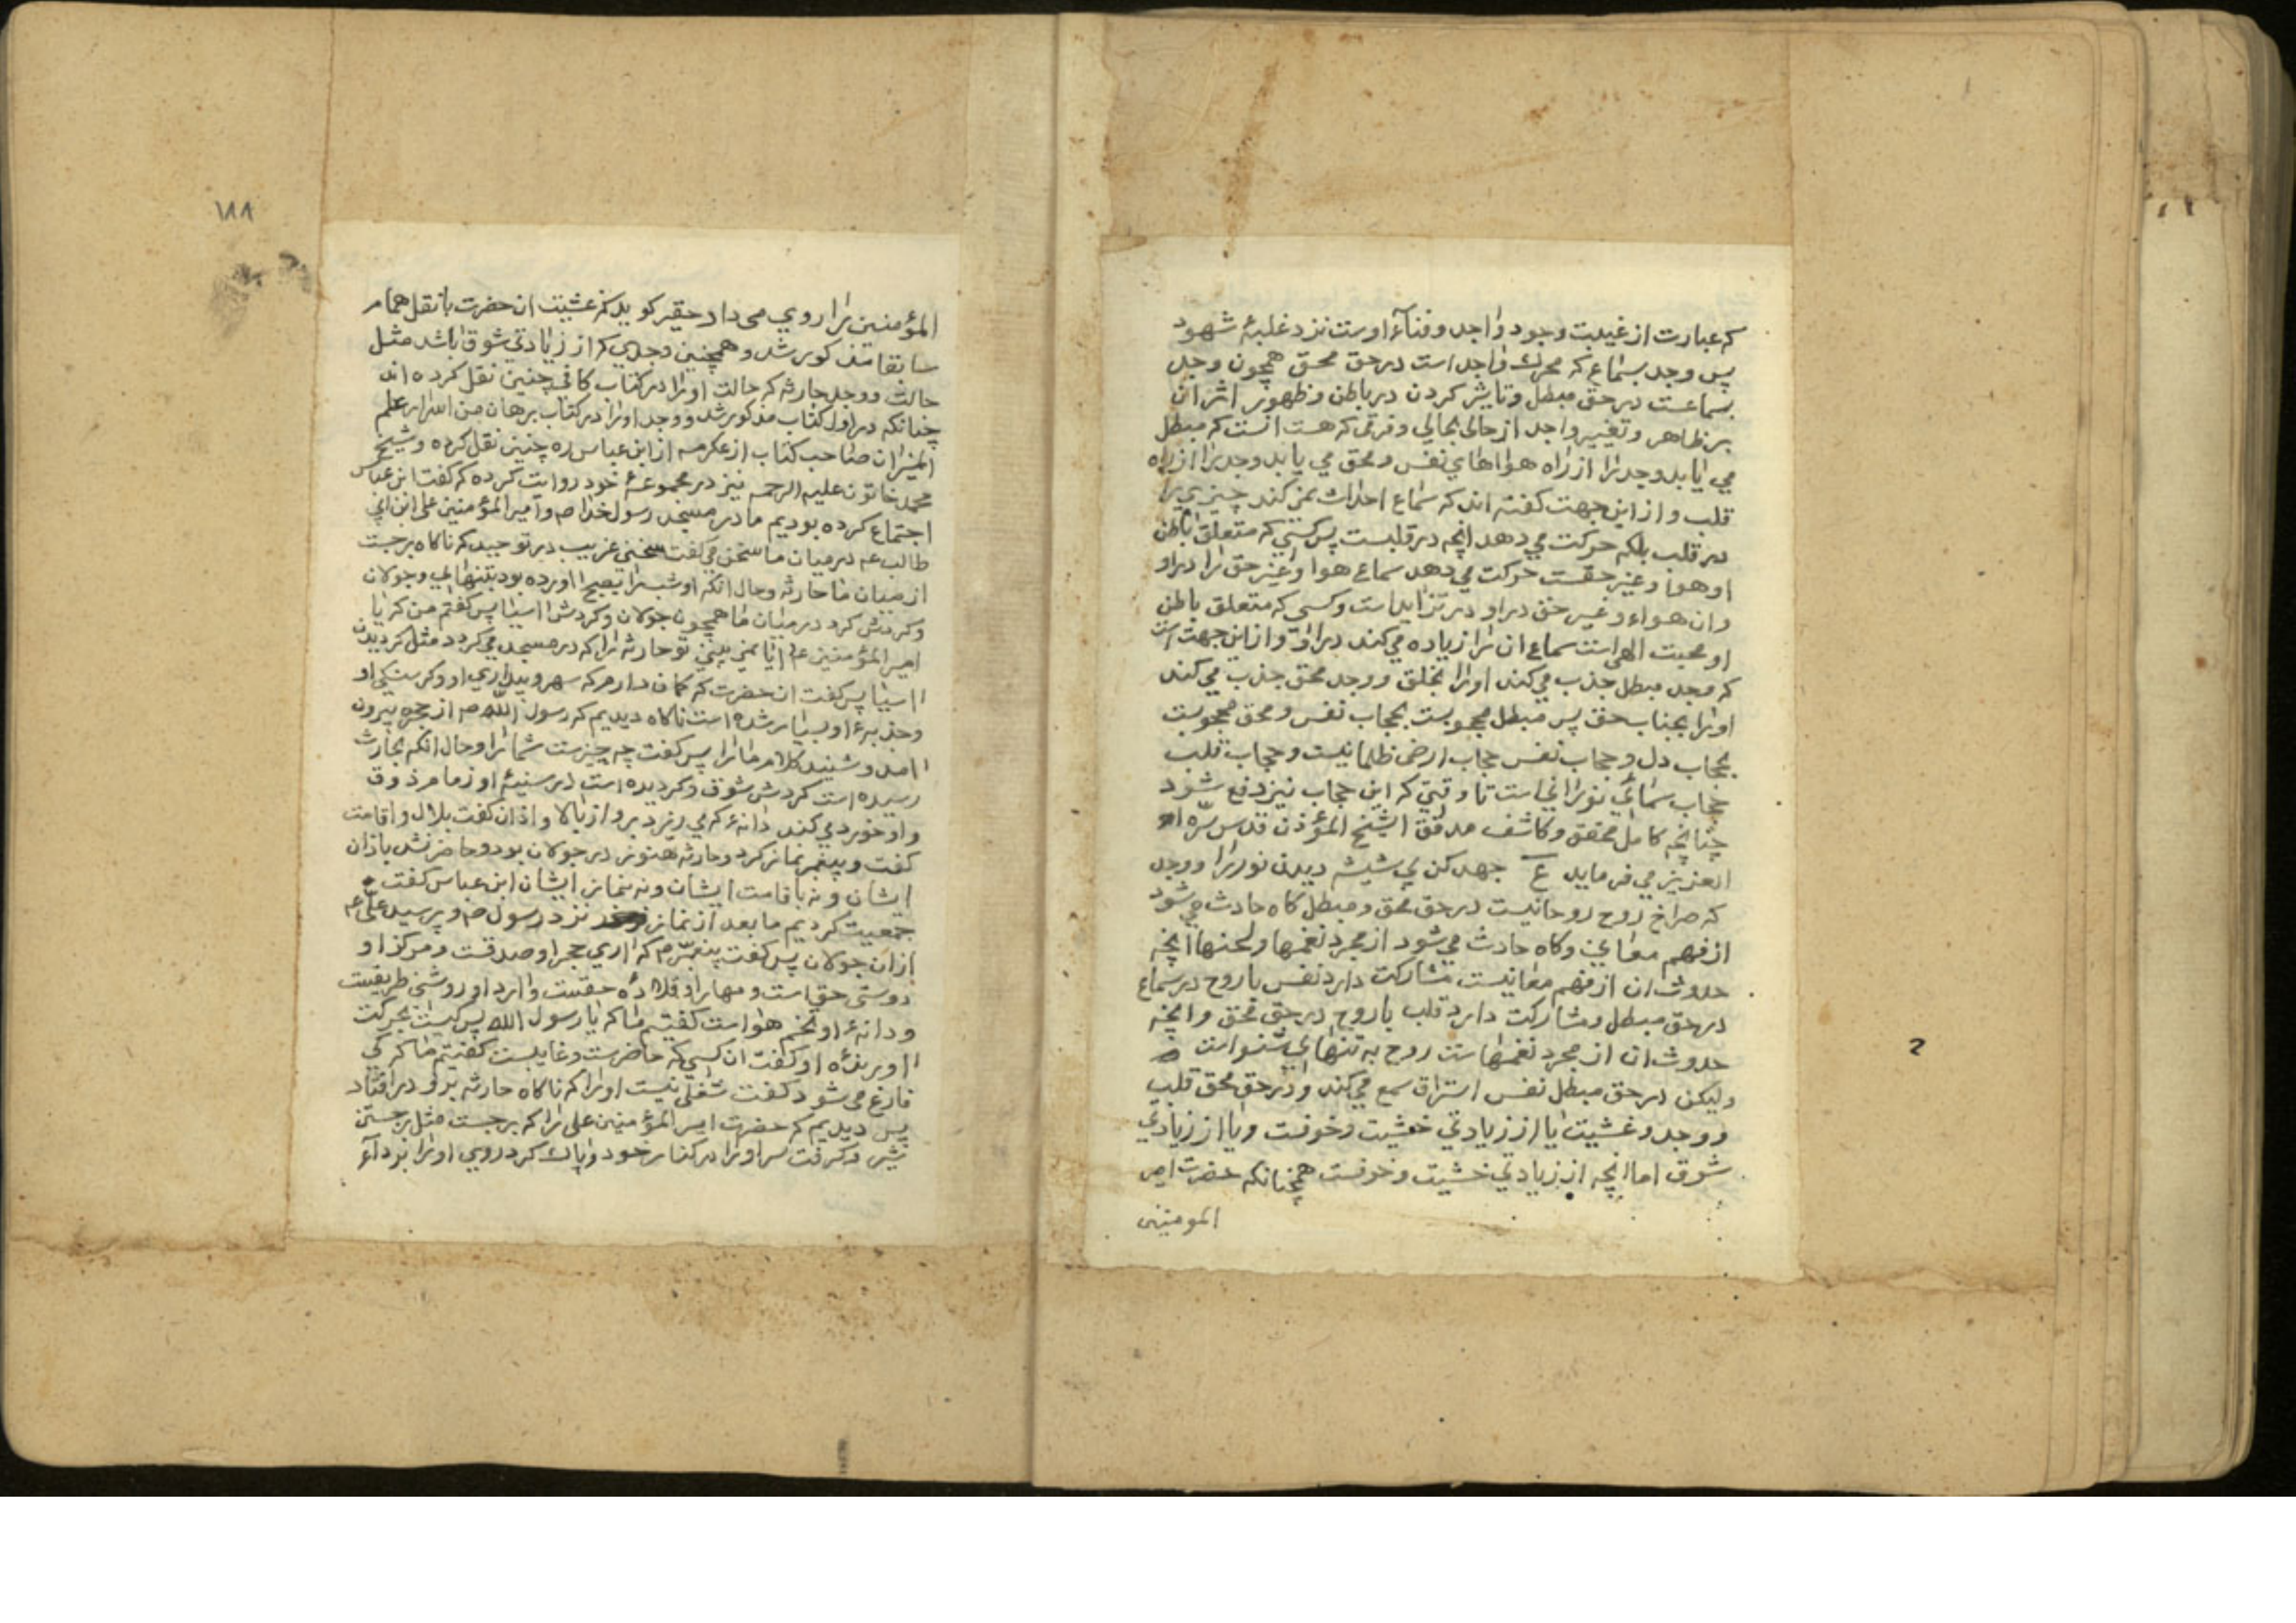 که عبارت از غیبت وجود واجد و فناء اوست نزد غلبهٔ شهود
پس وجد بسماع که محرک واجد است در حق محق همچون وجد
بسماعست در حق مبطل و تاثیر کردن در باطن و ظهور اثر ان
بر ظاهر و تغییر واجد از حالی بحالی و فرقی که هست انست که مبطل
می یابد وجد را از راه هواهای نفس و محق می یابد وجد را از راه
قلب و از این جهت گفته اند که سماع احداث نمی کند چیزی را
در قلب بلکه حرکت می دهد انچه در قلبست پس کسی که متعلق باطن
او هوا و غیر حقست حرکت می دهد سماع هوا و غیر حق را در او
و ان هواء و غیر حق در او در تزاید است و کسی که متعلق باطن
او محبت الهی است سماع ان را زیاده می کند در او و از این جهت است
که وجد مبطل جذب می کند او را بخلق و وجد محق جذب می کند
او را بجناب حق پس مبطل محجوبست بحجاب نفس و محق محجوبست
بحجاب دل و حجاب نفس حجاب ارضی ظلمانیست و حجاب قلب
حجاب سمائی نورانی است تا وقتی که این حجاب نیز دفع شود
چنانچه کامل محقق و کاشف مدقق الشیخ المؤذن قدس سرّه
العزیز می فرماید ع جهد کن بی شیشه دیدن نور را و وجد
که صراخ روح روحانیست در حق محق و مبطل کاه حادث می شود
از فهم معانی و کاه حادث می شود از مجرد نغمها و لحنها انچه
حدوث ان از فهم معانیست مشارکت دارد نفس با روح در سماع
در حق مبطل و مشارکت دارد قلب با روح در حق محق و انچه
حدوث ان از مجرد نغمهاست روح به تنهایی شنواست
ولیکن در حق مبطل نفس استراق سمع می کند و در حق محق قلب
و وجد و غشیت یا از زیادتی خشیت و خوفست و یا از زیادتی
شوق اما انچه از زیادتی خشیت و خوفست همچنانکه حضرت امیر
المومنین
۱۸۸
المؤمنین را روی می داد حقیر کوید که غشیت ان حضرت با نقل همام
سابقا مذکور شد و همچنین وجدی که از زیادتی شوق باشد مثل
حالت و وجد حارثه که حالت او را در کتاب کافی چنین نقل کرده اند
چنانکه در اول کتاب مذکور شد و وجد او را در کتاب برهان من اسرار علم
المیزان صاحب کتاب از عکرمه از ابن عباس ره چنین نقل کرده و شیخ
محمد خاتون علیه الرحمه نیز در مجموعهٔ خود روایت کرده که گفت ابن عباس
اجتماع کرده بودیم ما در مسجد رسول خدا ص و امیر المؤمنین علی ابن ابی
طالب ع در میان ما سخن می گفت سخنی غریب در توحید که ناکاه برجست
از میان ما حارثه و حال انکه او شب را بصبح اورده بود بتنهایی و جولان
و کردش کرد در میان ما همچون جولان و کردش اسیا پس گفتم من که یا
امیر المؤمنین ع ایا نمی بینی تو حارثه را که در مسجد می کردد مثل کردیدن
اسیا پس گفت ان حضرت که گمان دارم که سهر و بیداری او و کرسنکی او
و جذبهٔ او بسیار شده است ناکاه دیدیم که رسول الله ص از حجره بیرون
امد و شنید کلام ما را پس گفت چه چیزست شما را و حال انکه بحارث
رسیده است کردش شوق و کردیده است در سینهٔ او زمام ذوق
و او خورد می کند دانهٔ که می ریزد بر و از بالا و اذان گفت بلال و اقامت
گفت و پیغمبر نماز کرد و حارثه هنوز در جولان بود و حاضر نشد باذان
ایشان و نه باقامت ایشان و نه بنماز ایشان ابن عباس گفت
جمعیت کردیم ما بعد از نماز نزد رسول ص و پرسید علی ع
از ان جولان پس گفت پیغمبر ص که اری حجر او صدقست و مرکز او
دوستی حق است و مهار او قلادهٔ حقست و ارد او روشنی طریقست
و دانهٔ او تخم هواست گفتیم ما که یا رسول الله پس کیست بحرکت
اورندهٔ او گفت ان کسی که حاضرست و غایبست گفتیم ما که کی
فارغ می شود گفت شغلی نیست او را که ناکاه حارثه بر رو در افتاد
پس دیدیم که حضرت امیر المؤمنین علی را که برجست مثل برجستن
شیر و کرفت سر او را در کنار خود و پاک کرد روی او را برداء